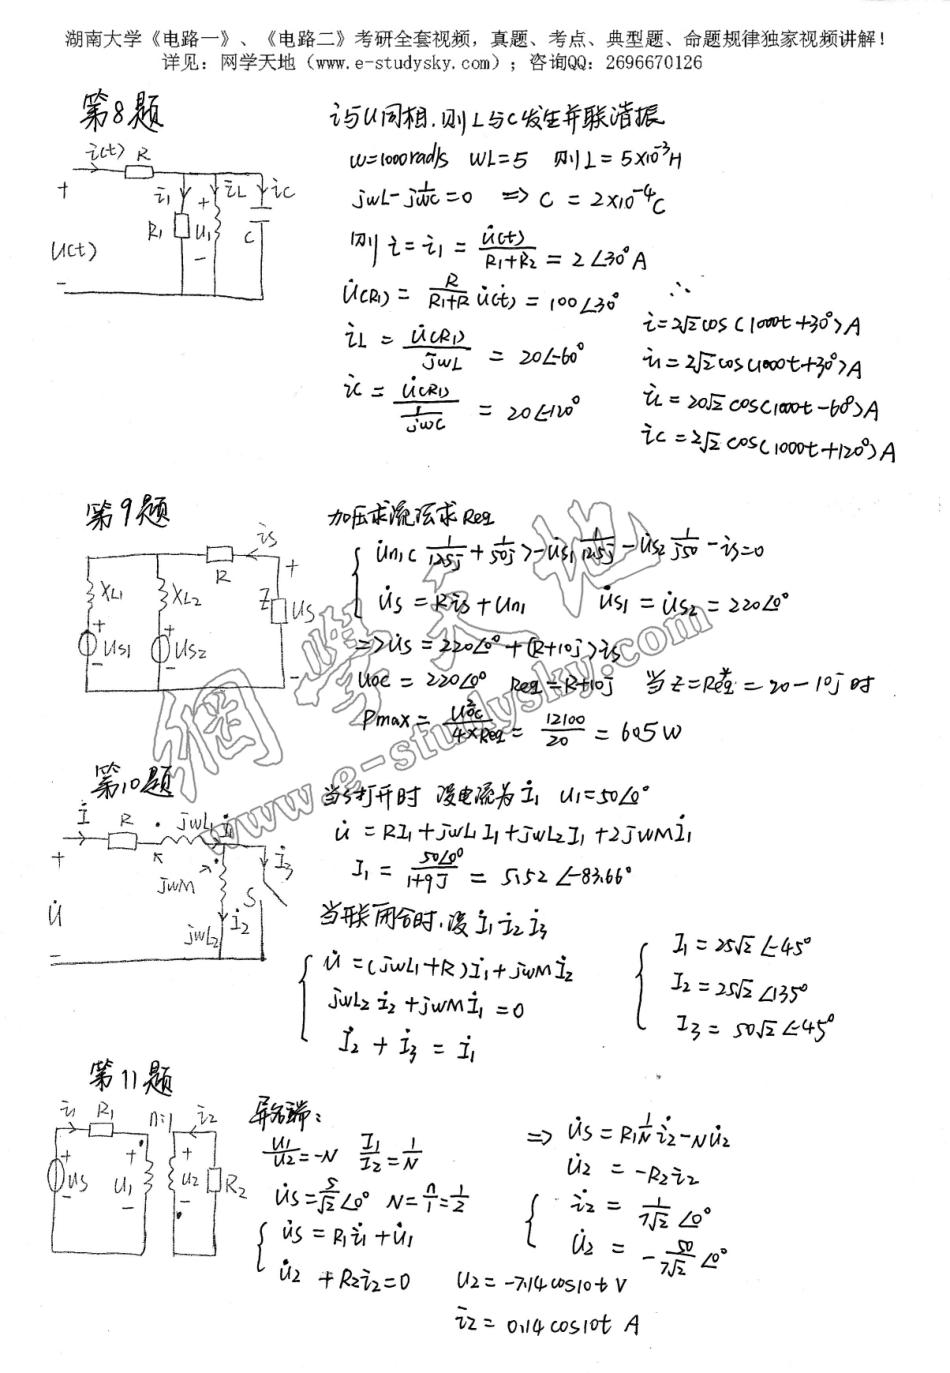 湖南大学《电路一》、《电路二》考研全套视频，真题、考点、典型题、命题规律独家视频讲解！
详见：网学天地（www.e-studysky.com）；咨询QQ：2696670126
第8题
i与U同相.则L与C发生并联谐振
i(t) R
i1 iL iC
+
R1 U1 C
U(t)
-
w=1000rad/s wL=5 则L=5×10⁻³H
jwL-j1/wc=0 => C=2×10⁻⁴C
则i=i1=U̇(t)/(R1+R2)=2∠30°A
U̇(R1)=R/(R1+R) U̇(t)=100∠30°
iL=U̇(R1)/jwL=20∠-60°
iC=U̇(R1)/(1/jwC)=20∠120°
∴
i=2√2cos(1000t+30°)A
i1=2√2cos(1000t+30°)A
iL=20√2cos(1000t-60°)A
iC=2√2cos(1000t+120°)A
第9题
加压求流法求Req
is
R
XL1 XL2 Z Us
Us1 Us2
U̇n1(1/12.5j+1/50j)-U̇s1 1/12.5j-U̇s2 1/j50-is=0
U̇s=Ris+Un1 U̇s1=U̇s2=220∠0°
=>U̇s=220∠0°+(R+10j)is
Uoc=220∠0° Req=R+10j 当Z=Req*=20-10j时
Pmax=Uoc²/(4×Req)=12100/20=605W
第10题
İ R jwL1 İ1
İ3
+
jwM S
U̇ İ2
jwL2
-
当S打开时 设电流为İ1 U1=50∠0°
u̇=RI1+jwL1I1+jwL2I1+2jwMİ1
I1=50∠0°/(1+9j)=5.52∠-83.66°
当开关闭合时,设İ1 İ2 İ3
u̇=(jwL1+R)İ1+jwMİ2
jwL2İ2+jwMİ1=0
İ2+İ3=İ1
I1=25√2∠-45°
I2=25√2∠135°
I3=50√2∠-45°
第11题
i1 R1 n:1 i2
Us U1 U2 R2
异名端:
U1/U2=-N I1/I2=1/N
U̇s=5/√2∠0° N=n/1=1/2
U̇s=R1i1+U̇1
U̇2+R2i2=0
=> U̇s=R1 1/N i2-NU̇2
U̇2=-R2i2
i2=1/7√2∠0°
U̇2=-50/7√2∠0°
U2=-7.14cos10tV
i2=0.14cos10t A
網學天地
www.e-studysky.com